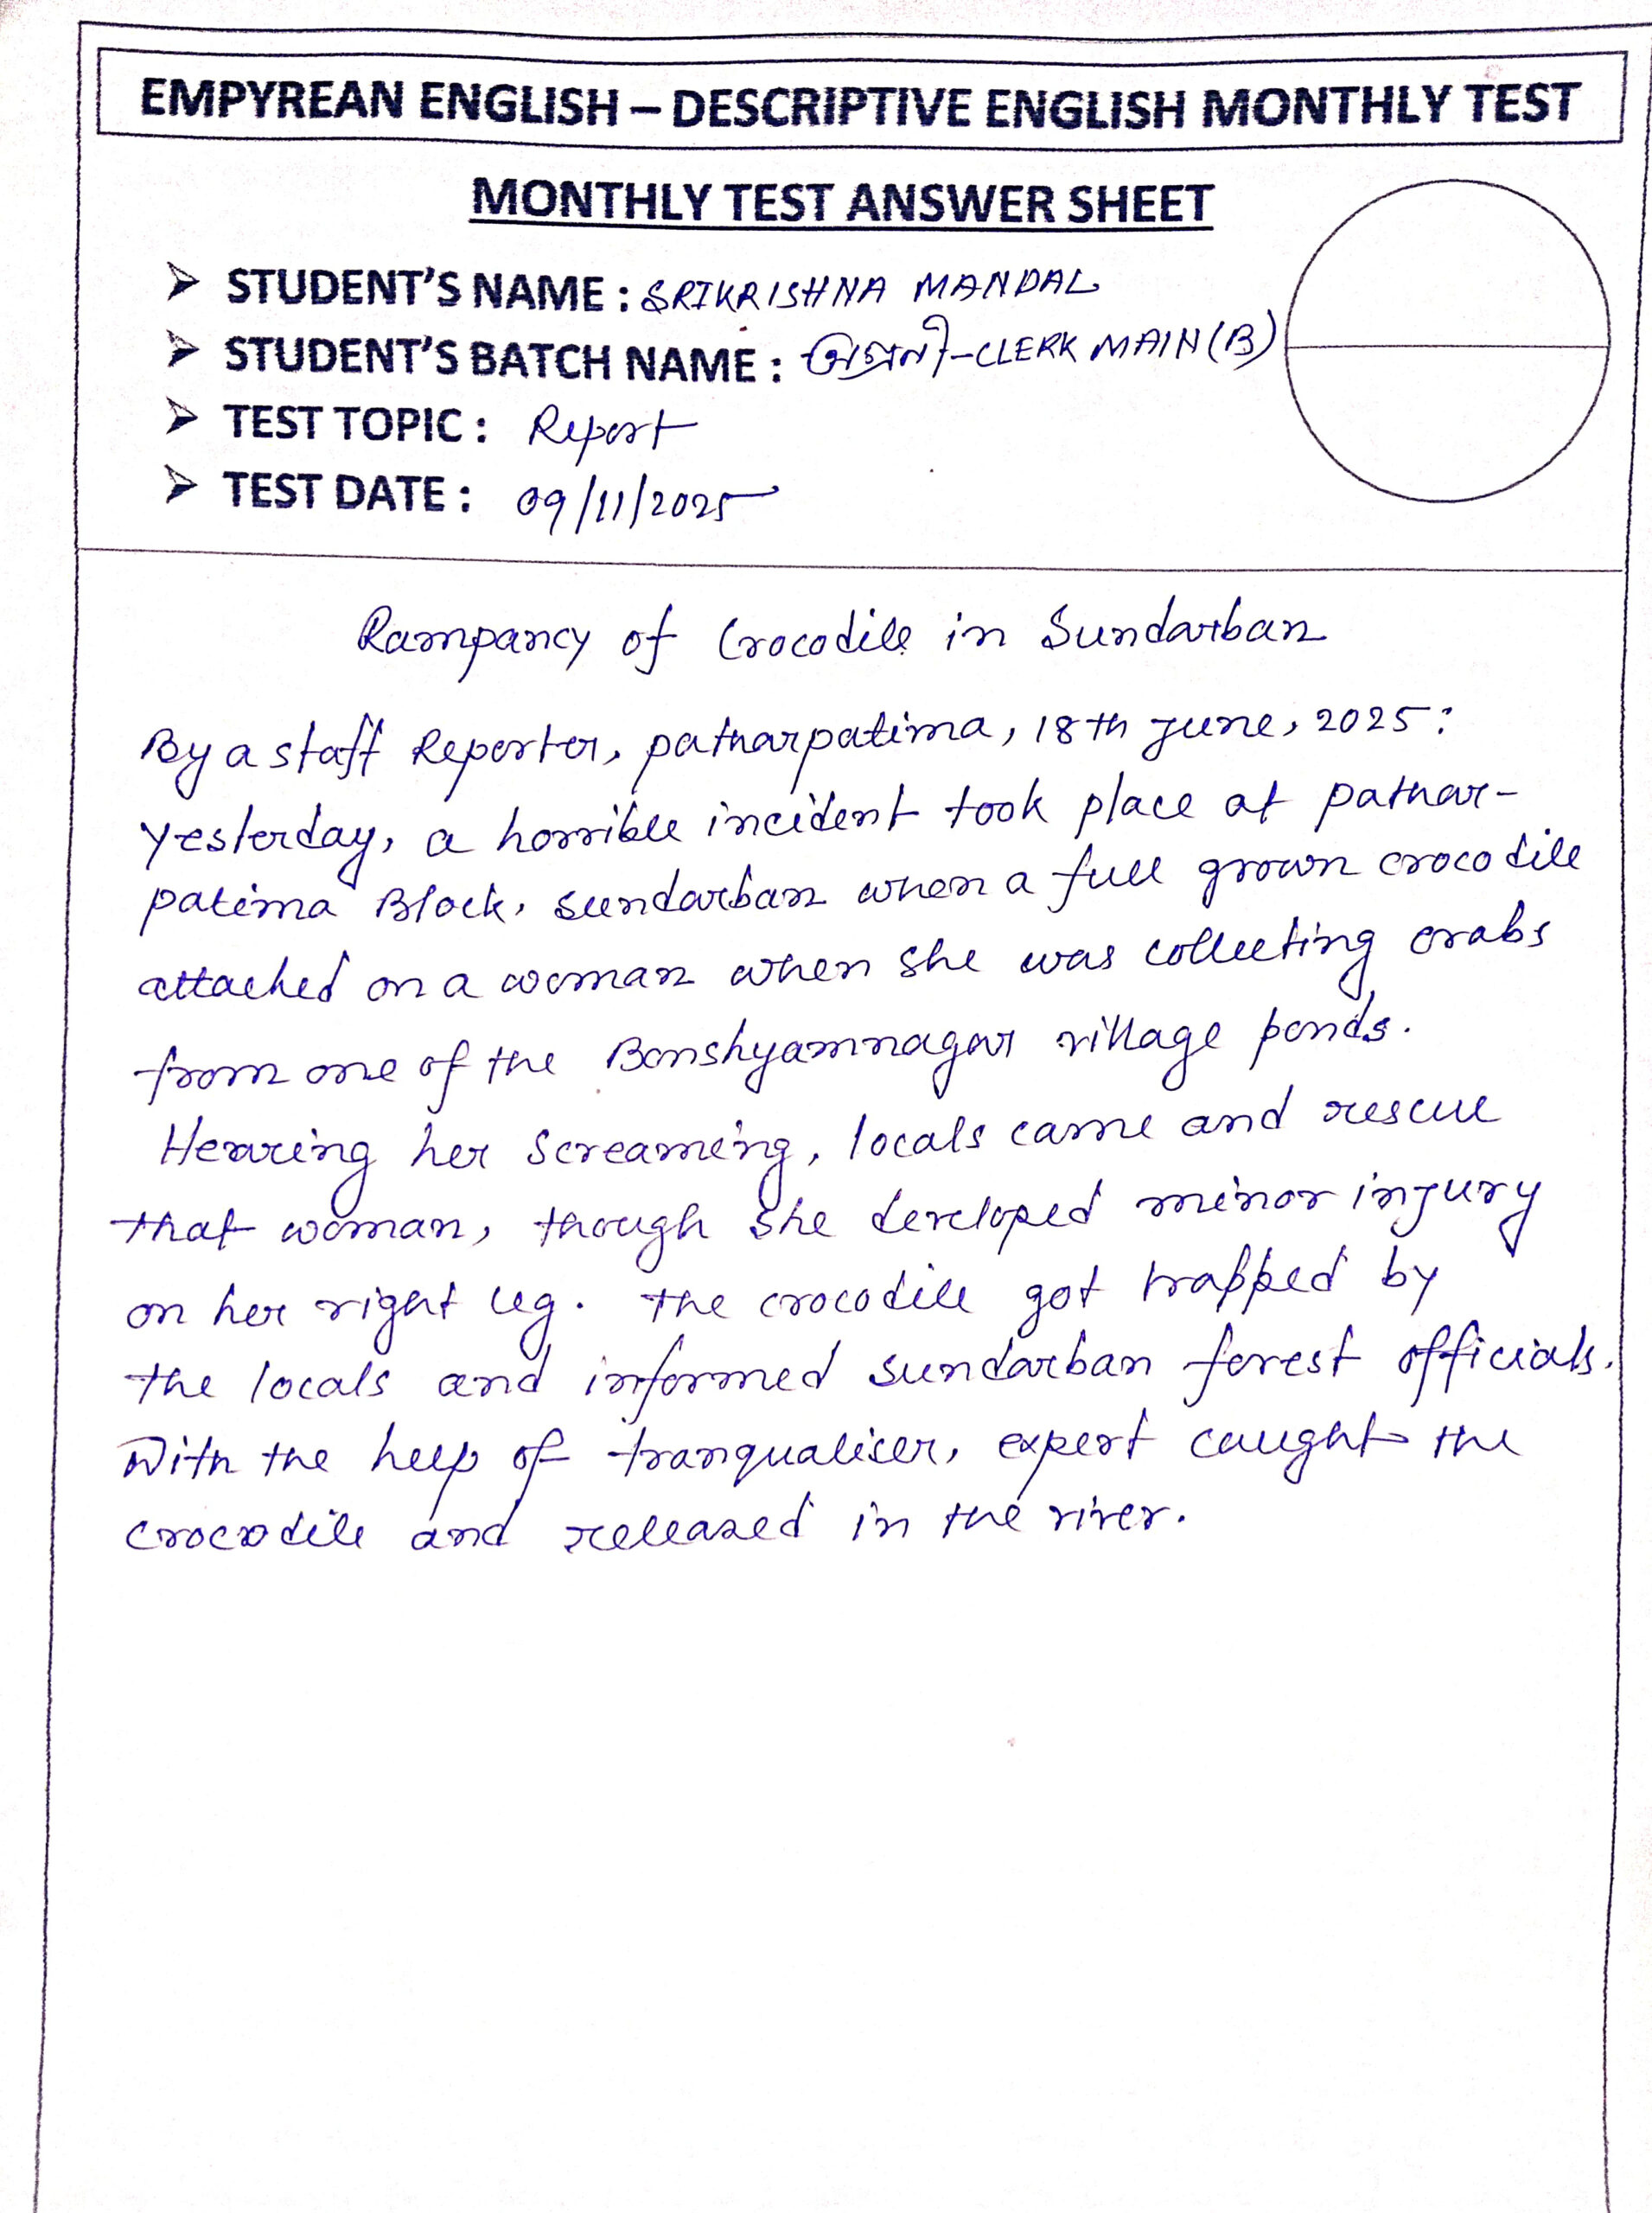 EMPYREAN ENGLISH – DESCRIPTIVE ENGLISH MONTHLY TEST
MONTHLY TEST ANSWER SHEET
➢ STUDENT'S NAME : SRIKRISHNA MANDAL
➢ STUDENT'S BATCH NAME : -CLERK MAIN (B)
➢ TEST TOPIC : Report
➢ TEST DATE : 09/11/2025
Rampancy of Crocodile in Sundarban
By a staff Reporter, patharpatima, 18th June, 2025:
Yesterday, a horrible incident took place at pathar-
patima Block, sundarban when a full grown crocodile
attacked on a woman when she was collecting crabs
from one of the Banshyamnagar village ponds.
Hearing her screaming, locals came and rescue
that woman, though she developed minor injury
on her right leg. The crocodile got trapped by
the locals and informed sundarban forest officials.
With the help of tranqualiser, expert caught the
crocodile and released in the river.